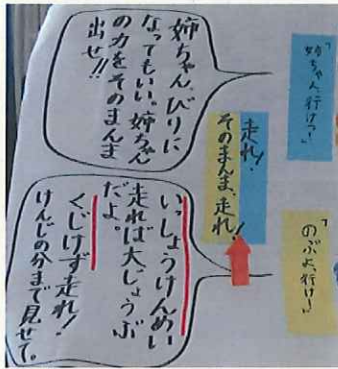 「姉ちゃん、行けっ！」
「のぶよ、行け〜」
走れ！
そのまんま、走れ！
姉ちゃん、びりに
なってもいい。姉ちゃん
の力をそのまんま
出せ!!
いっしょうけんめい
走れば大じょうぶ
だよ。
くじけず走れ！
けんじの分まで見せて。